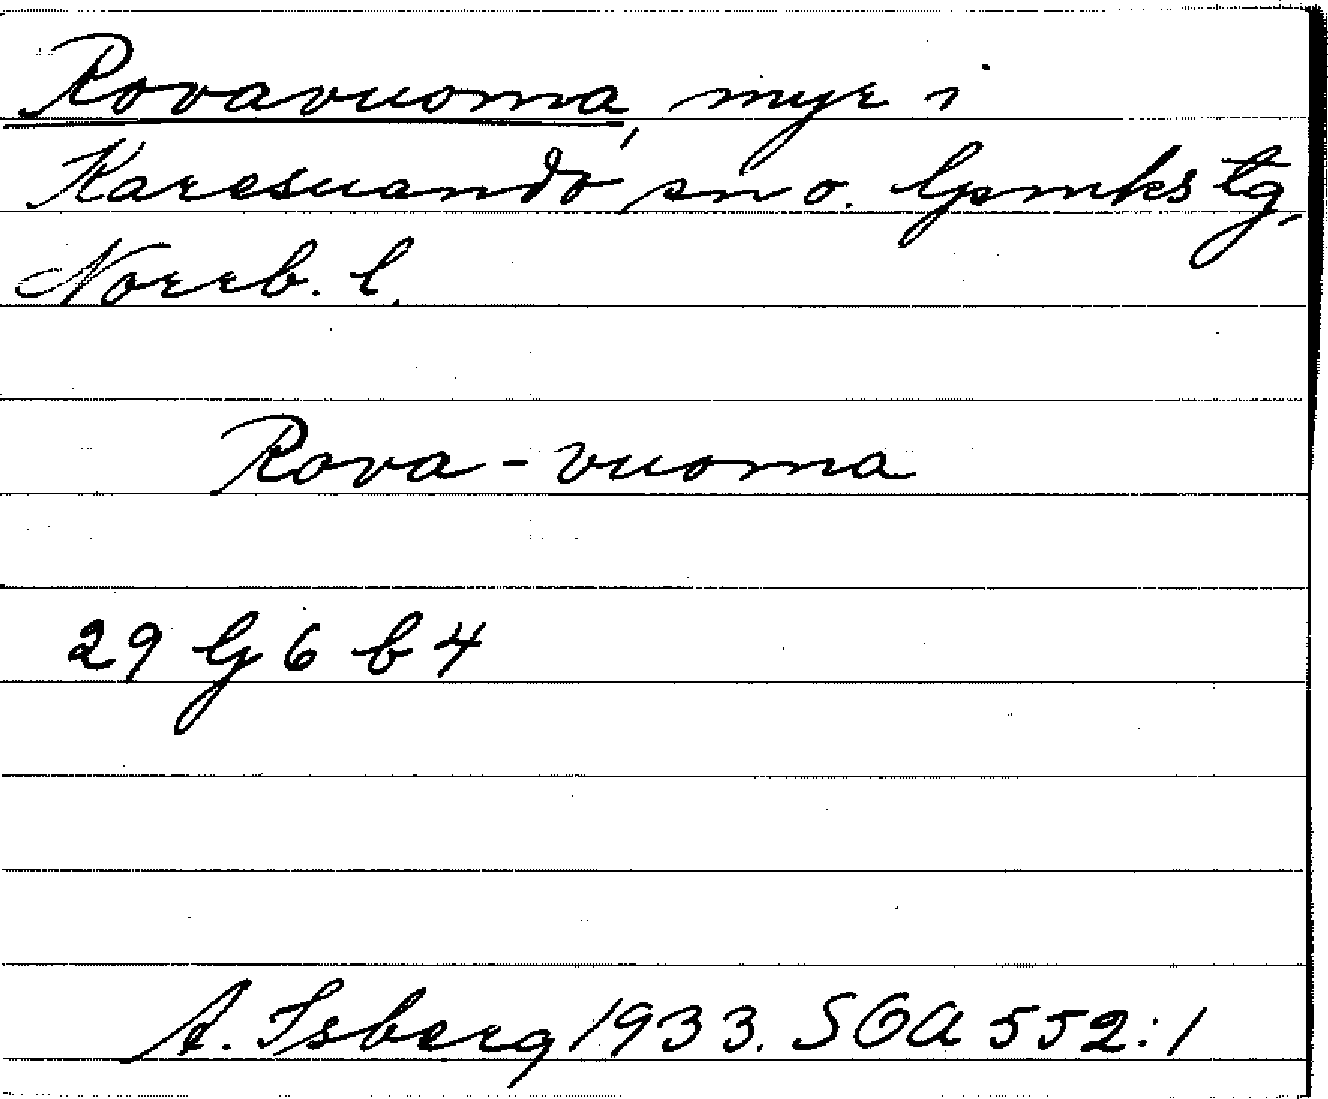 Rovavuoma, myr i
Karesuando sn o. lpmks tg,
Norrb. l.
Rova-vuoma
29 G 6 b 4
A. Isberg 1933. SOA 552:1